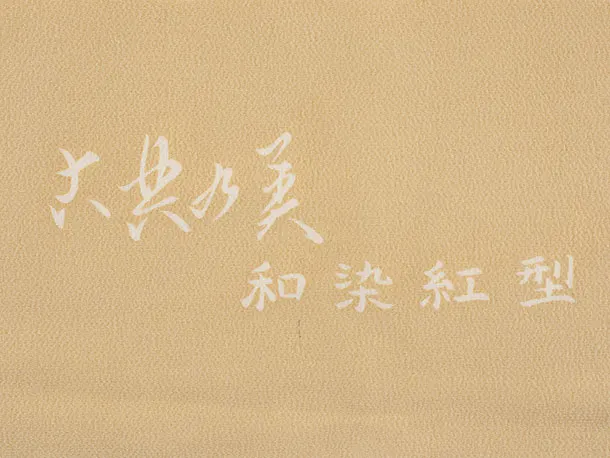 古典の美
和染紅型